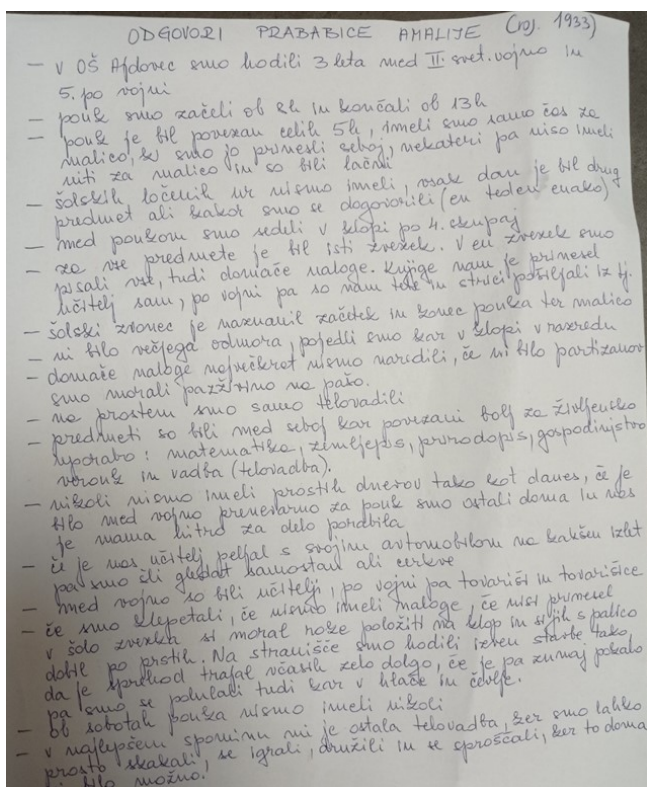 ODGOVORI PRABABICE AMALIJE (roj. 1933)
- V OŠ Ajdovec smo hodili 3 leta med II. svet. vojno in
5. po vojni
- pouk smo začeli ob 8h in končali ob 13h
- pouk je bil povezan celih 5h, imeli smo samo čas za
malico, ki smo jo prinesli seboj, nekateri pa niso imeli
niti za malico in so bili lačni
- šolskih ločenih ur nismo imeli, vsak dan je bil drug
predmet ali kakor smo se dogovorili (en teden enako)
- med poukom smo sedeli v klopi po 4. skupaj
- za vse predmete je bil isti zvezek. V en zvezek smo
pisali vse, tudi domače naloge. Knjige nam je prinesel
učitelj sam, po vojni pa so nam tete in strici pošiljali iz tj.
- šolski zvonec je naznanil začetek in konec pouka ter malico
- ni bilo večjega odmora, pojedli smo kar v klopi v razredu
- domače naloge največkrat nismo naredili, če ni bilo partizanov
smo morali paz živino na pašo.
- na prostem smo samo telovadili
- predmeti so bili med seboj kar povezani bolj za življensko
uporabo: matematika, zemljepis, prirodopis, gospodinjstvo
verouk in vadba (telovadba).
- nikoli nismo imeli prostih dnevov tako kot danes, če je
bilo med vojno prenevarno za pouk smo ostali doma in nas
je mama hitro za delo porabila
- če je nas učitelj peljal s svojim avtomobilom na kakšen izlet
pa smo šli gledat samostan ali cerkve
- med vojno so bili učitelji, po vojni pa tovariši in tovarišice
- če smo klepetali, če nismo imeli naloge, če nisi prinesel
v šolo zvezka si moral roke položiti na klop in si jih s palico
dobil po prstih. Na stranišče smo hodili izven stavbe tako,
da je sprehod trajal včasih zelo dolgo, če je pa zunaj pokalo
pa smo se polulali tudi kar v hlače in čevlje.
- ob sobotah pouka nismo imeli nikoli
- v najlepšem spominu mi je ostala telovadba, ker smo lahko
prosto skakali, se igrali, družili in se sproščali, ker to doma
ni bilo možno.